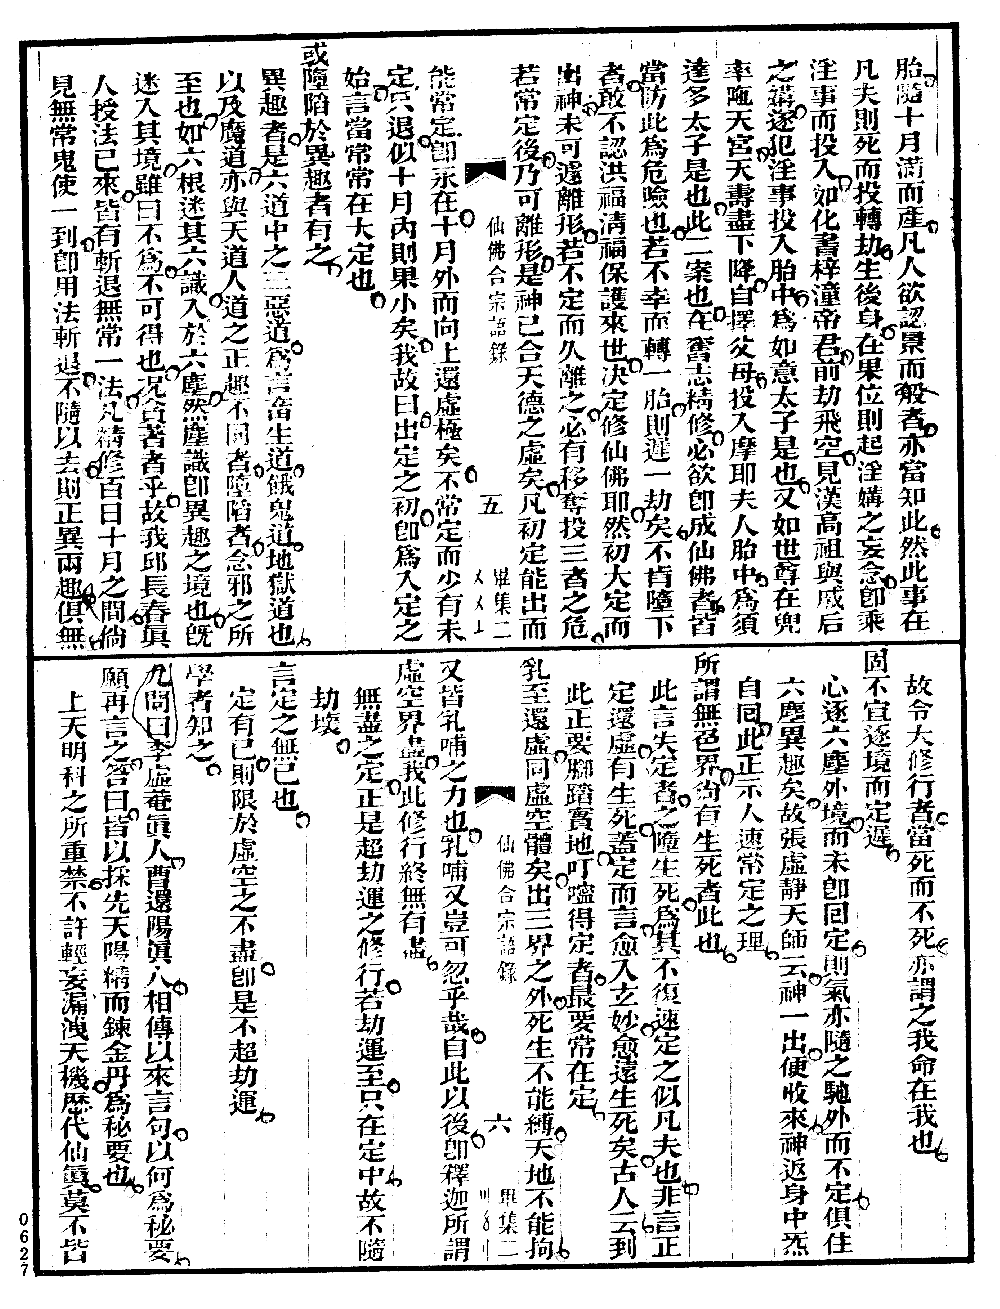 胎隨十月滿而產凡人欲認景而般者亦當知此然此事在
凡夫則死而投轉劫生後身在果位則起淫媾之妄念卽乘
淫事而投入如化書梓潼帝君前劫飛空見漢高祖與戚后
之媾遂犯淫事投入胎中爲如意太子是也又如世尊在兜
率陁天宮天壽盡下降自擇父母投入摩耶夫人胎中爲須
達多太子是也此二案也在奮志精修必欲卽成仙佛者皆
當防此爲危險也若不幸而轉一胎則遲一劫矣不肯墮下
者敢不認洪福淸福保護來世決定修仙佛耶然初大定而
出神未可遠離形若不定而久離之必有移奪投三者之危
若常定後乃可離形是神已合天德之虛矣凡初定能出而
仙佛合宗語錄
五
畢集二
能常定卽永在十月外而向上還虛極矣不常定而少有未
定只退似十月內則果小矣我故曰出定之初卽爲入定之
始言當常常在大定也
或墮陷於異趣者有之
異趣者是六道中之三惡道爲言畜生道餓鬼道地獄道也
以及魔道亦與天道人道之正趣不同者墮陷者念邪之所
至也如六根迷其六識入於六塵然塵識卽異趣之境也旣
迷入其境雖曰不爲不可得也况貪著者乎故我邱長春眞
人授法已來皆有斬退無常一法凡精修百日十月之間倘
見無常鬼使一到卽用法斬退不隨以去則正異兩趣俱無
故令大修行者當死而不死亦謂之我命在我也
固不宜逐境而定遲
心逐六塵外境而未卽回定則氣亦隨之馳外而不定俱住
六塵異趣矣故張虛靜天師云神一出便收來神返身中炁
自回此正示人速常定之理
所謂無色界尙有生死者此也
此言失定者之墮生死爲其不復速定之似凡夫也非言正
定還虛有生死蓋定而言愈入玄妙愈遠生死矣古人云到
此正要腳踏實地叮嚀得定者最要常在定
乳至還虛同虛空體矣出三界之外死生不能縛天地不能拘
仙佛合宗語錄
六
畢集二
又皆乳哺之力也乳哺又豈可忽乎哉自此以後卽釋迦所謂
虛空界盡我此修行終無有盡
無盡之定正是超劫運之修行若劫運至只在定中故不隨
劫壞
言定之無已也
定有已則限於虛空之不盡卽是不超劫運
學者知之
九問曰李虛菴眞人曹還陽眞人相傳以來言句以何爲秘要
願再言之答曰皆以採先天陽精而鍊金丹爲秘要也
上天明科之所重禁不許輕妄漏洩天機歷代仙眞莫不皆
0627